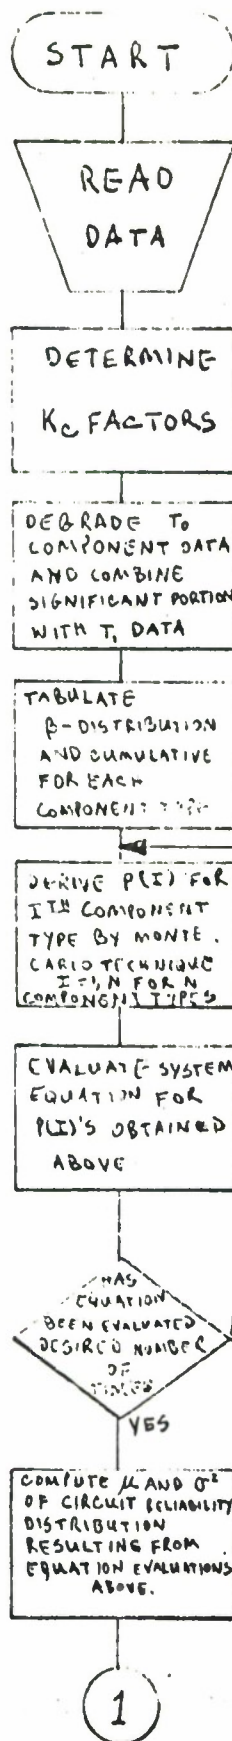 START
READ
DATA
DETERMINE
Kc FACTORS
DEGRADE To
COMPONENT DATA
AND COMBINE
SIGNIFICANT PORTION
WITH T, DATA
TABULATE
β-DISTRIBUTION
AND CUMULATIVE
FOR EACH
COMPONENT TYPE
DERIVE P(I) FOR
ITH COMPONENT
TYPE BY MONTE.
CARLO TECHNIQUE
I=1,N FOR N
COMPONENT TYPES
EVALUATE SYSTEM
EQUATION FOR
P(I)'S OBTAINED
ABOVE
HAS
EQUATION
BEEN EVALUATED
DESIRED NUMBER
OF
TIMES
YES
COMPUTE μ AND σ²
OF CIRCUIT RELIABILITY
DISTRIBUTION
RESULTING FROM
EQUATION EVALUATIONS
ABOVE.
1